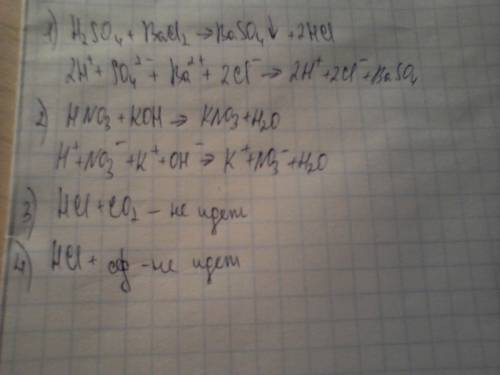 1) H₂SO₄ + BaCl₂ → BaSO₄↓ + 2HCl
2H⁺ + SO₄²⁻ + Ba²⁺ + 2Cl⁻ → 2H⁺ + 2Cl⁻ + BaSO₄
2) HNO₃ + KOH → KNO₃ + H₂O
H⁺ + NO₃⁻ + K⁺ + OH⁻ → K⁺ + NO₃⁻ + H₂O
3) HCl + CO₂ – не идет
4) HCl + – не идет